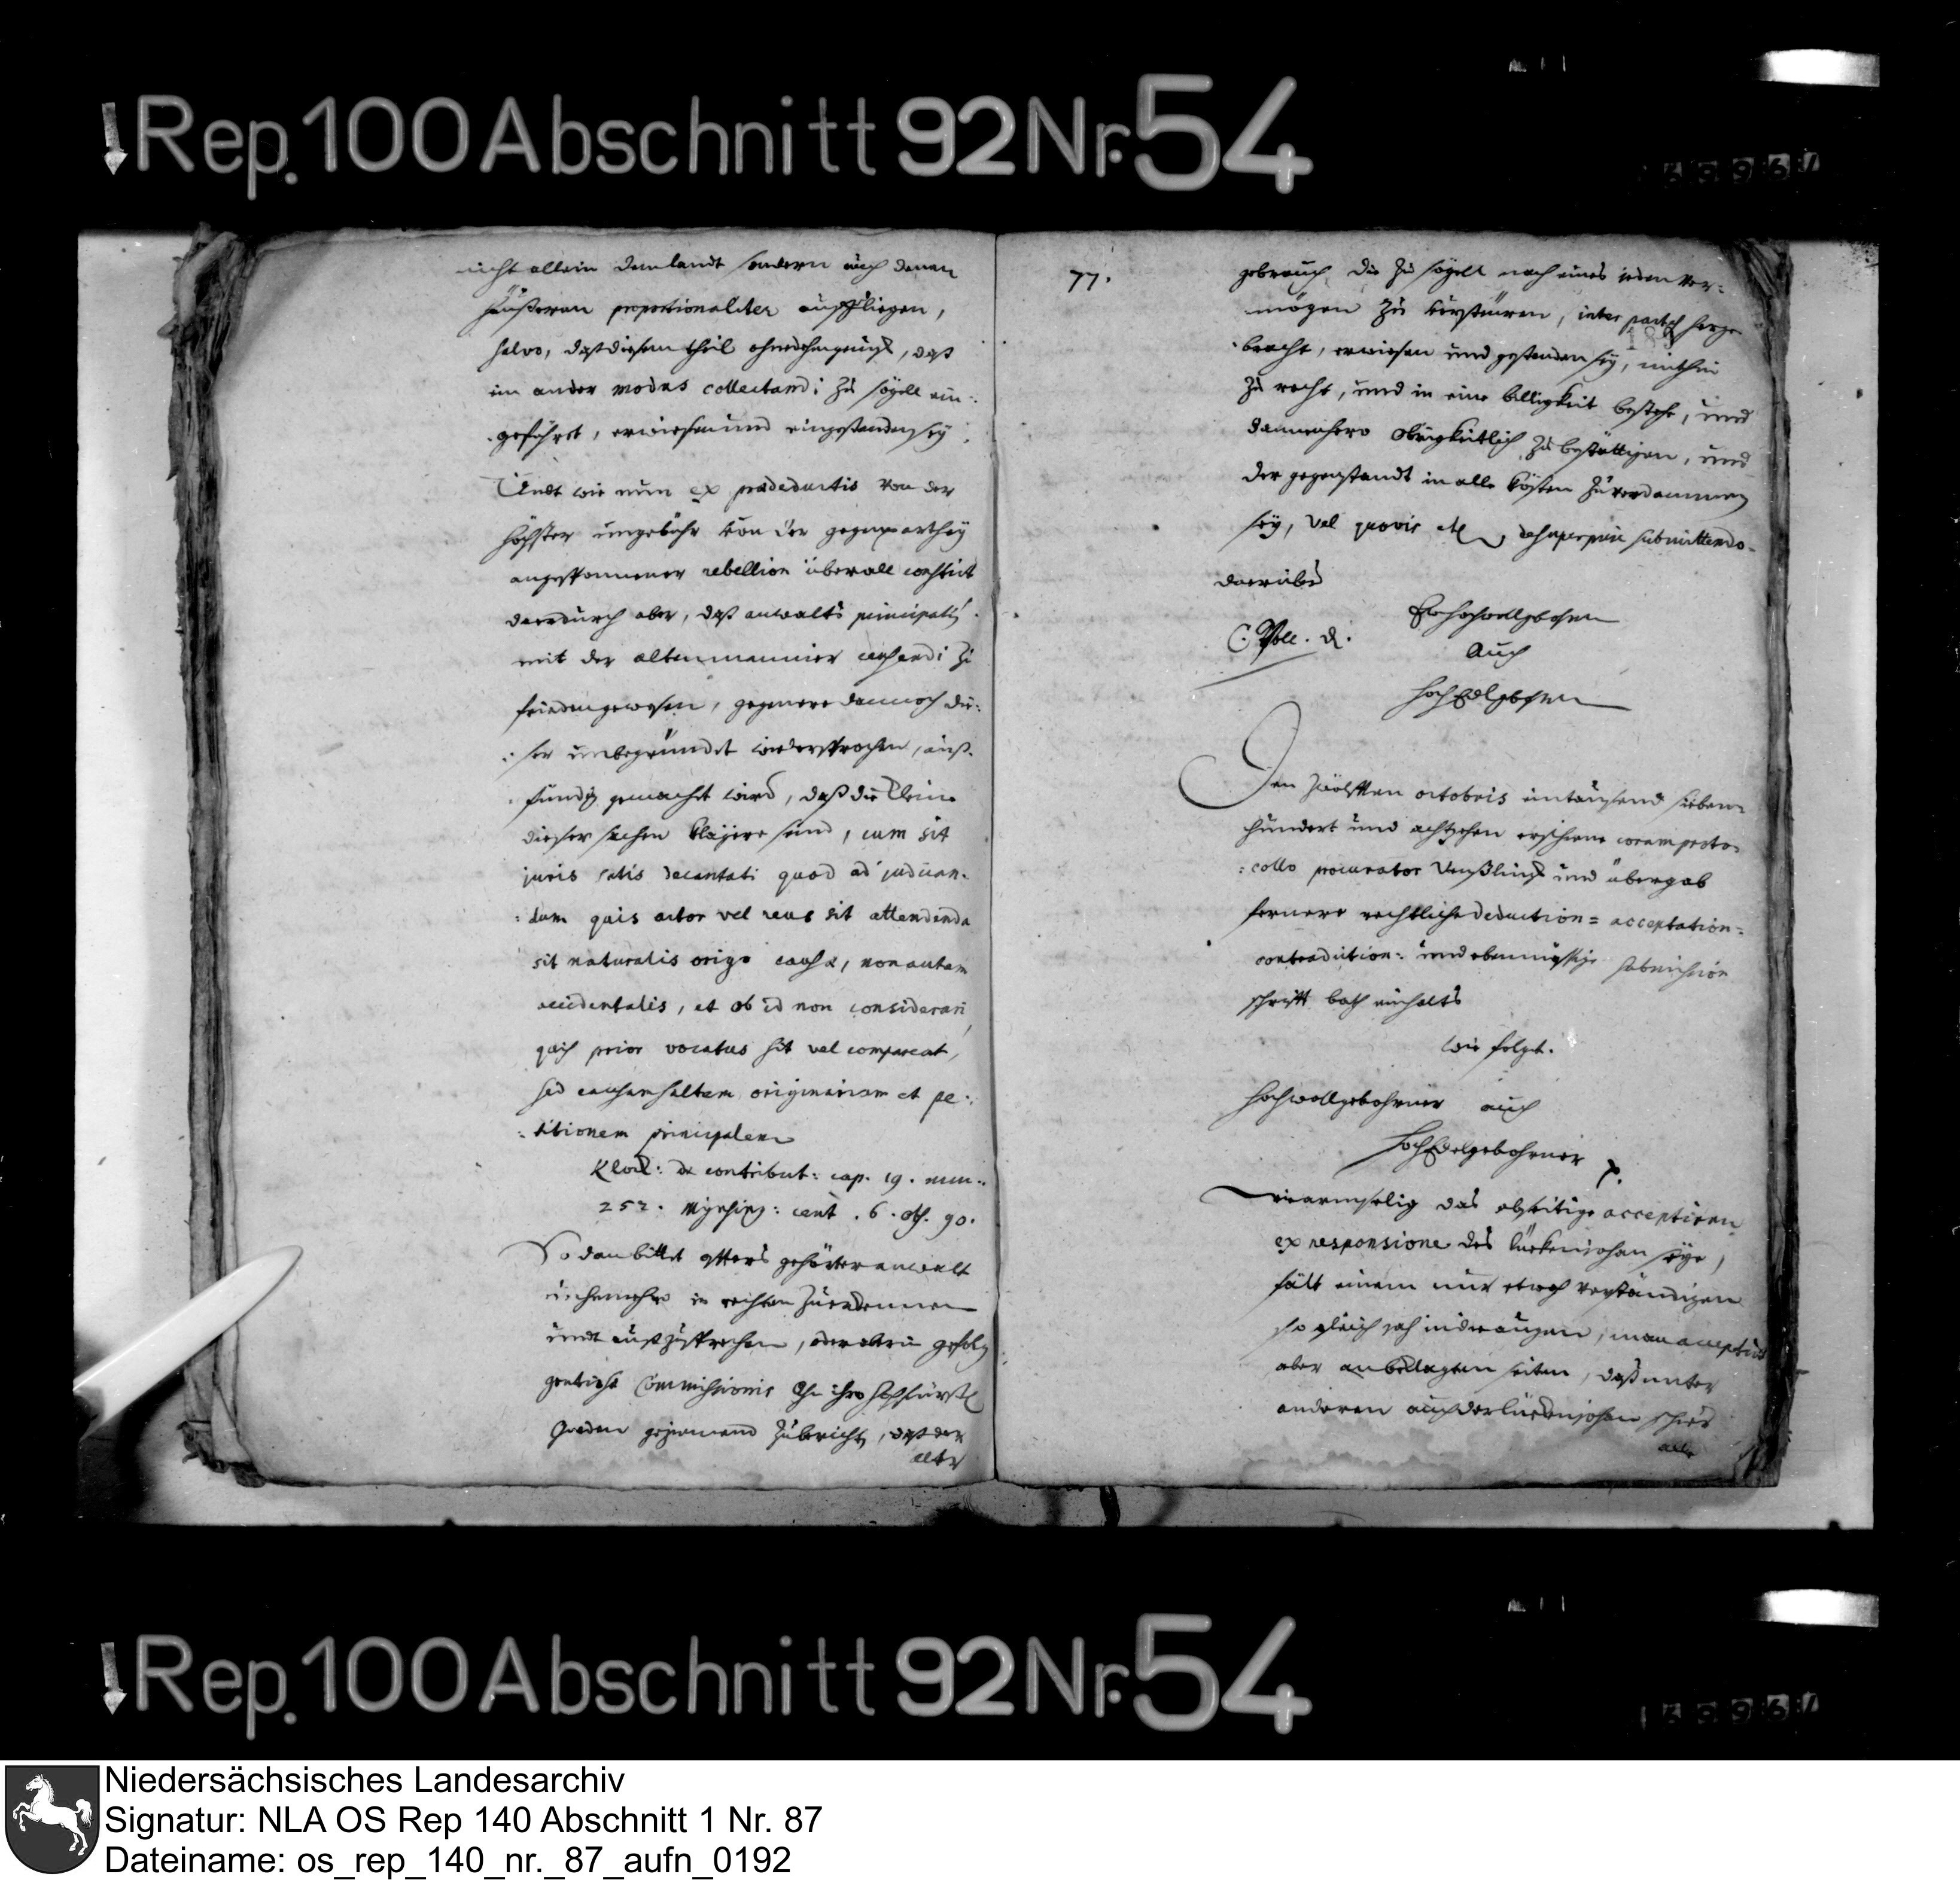 Rep. 100 Abschnitt 92 Nr. 54
nicht allein dem landt sondern auch denen
häußeren proportionaliter auffliegen,
salvo, daß diesem theil ohnnachtheilig, daß
ein ander modus collectandi zu sögell ein-
geführet, erwiesen und eingestanden sey.
Undt wie nun ex prædeductis von der
höchster ungebühr von der gegenparthey
angesponnener rebellion überall constirt
dardurch aber, daß anwalts principalen
mit der alten mannier censendi zu
frieden gewesen, gegnere dannoch die-
ser unbegründet widersprochen, auß-
fündig gemacht wird, daß die kleine
dieser sachen klägere seind, cum sit
juris satis decantati quod ad judican-
dum quis actor vel reus sit attendenda
sit naturalis origo causæ, non autem
accidentalis, et ob id non considerari,
quis prior vocatus sit vel compareat,
sed causam saltem originariam et pe-
titionem principalem
Klock: de contribut: cap. 19. num:
252. Mynsing: cent. 6. obs. 90.
So dan bittet offters gehörter anwalt
nunmehro in rechten zuerkennen
undt außzusprechen, oder aber in gefolg
gnedigst Commissionis an ihro hochfürstl
Gnaden geziemend zuberichten, daß der
alter
77.
gebrauch die zu sögell nach eines jeden ver-
mögen zu bersteuren, inter partes herge-
bracht, erwiesen und gestanden sey, mithin
zu recht, und in eine billigkeit bestehe, und
dannenhero obrigkeitlich zu bestättigen, und
der gegenstandt in alle kösten zuverdammen
sey, vel quovis etc desuper pure submittendo
darüber
Ew hochwollgebohren
C. Voll. D.
Auch
HochEdelgebohren
Den zwölfften octobris eintausend sieben-
hundert und achtzehen erschiene coram proto-
collo procurator und übergab
fernere rechtliche deduction= acceptation=
contradiction= und ebenmässige submission
schrifft bath einhalts
wie folget.
Hochwollgebohrner auch
HochEdelgebohrner p.
Wie armselig das abseitige acceptiren
ex responsione des Lückenjohan seye,
fält einem nur etwas verständigen
so gleich in die augen, man acceptirt
aber an beklagten seiten, daß unter
anderen auch der lückenjohan
alle
Rep. 100 Abschnitt 92 Nr. 54
Niedersächsisches Landesarchiv
Signatur: NLA OS Rep 140 Abschnitt 1 Nr. 87
Dateiname: os_rep_140_nr._87_aufn_0192